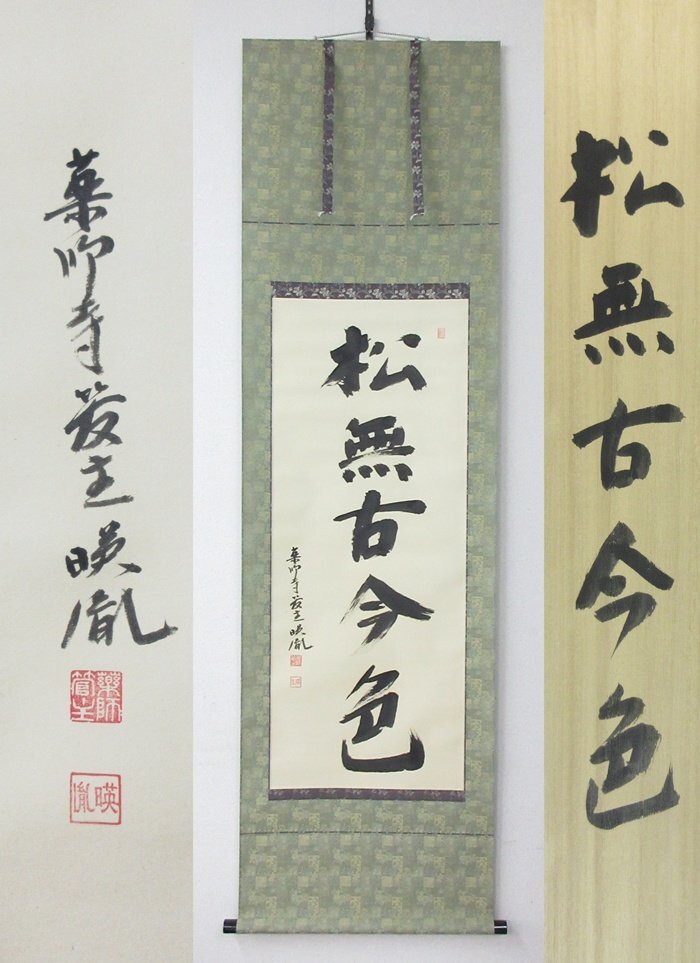 薬師寺管主暎胤
藥師管主
暎胤
松無古今色
薬師寺管主暎胤
松無古今色